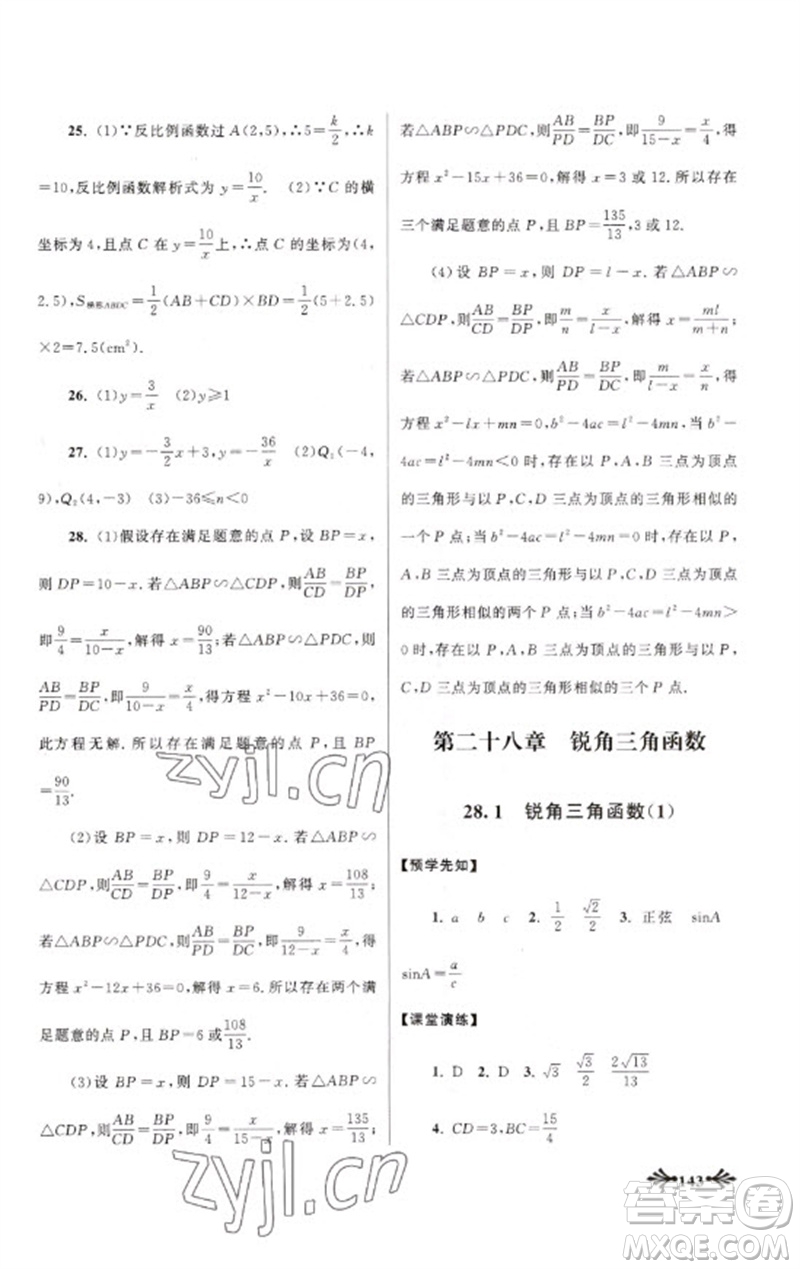 25. (1)∵反比例函数过 A(2,5),∴5=k/2,∴k
=10,反比例函数解析式为 y=10/x. (2)∵C 的横
坐标为4,且点 C 在 y=10/x 上,∴点 C 的坐标为(4,
2.5),S梯形ABDC=1/2(AB+CD)×BD=1/2(5+2.5)
×2=7.5(cm²).
26. (1)y=3/x (2)y⩾1
27. (1)y=-3/2x+3,y=-36/x (2)Q₁(-4,
9),Q₂(4,-3) (3)-36⩽n<0
28. (1)假设存在满足题意的点 P,设 BP=x,
则 DP=10-x.若△ABP∽△CDP,则AB/CD=BP/DP,
即9/4=x/(10-x),解得 x=90/13;若△ABP∽△PDC,则
AB/PD=BP/DC,即9/(10-x)=x/4,得方程 x²-10x+36=0,
此方程无解.所以存在满足题意的点 P,且 BP
=90/13.
(2)设 BP=x,则 DP=12-x.若△ABP∽
△CDP,则AB/CD=BP/DP,即9/4=x/(12-x),解得 x=108/13;
若△ABP∽△PDC,则AB/PD=BP/DC,即9/(12-x)=x/4,得
方程 x²-12x+36=0,解得 x=6.所以存在两个满
足题意的点 P,且 BP=6 或108/13.
(3)设 BP=x,则 DP=15-x.若△ABP∽
△CDP,则AB/CD=BP/DP,即9/4=x/(15-x),解得 x=135/13;
若△ABP∽△PDC,则AB/PD=BP/DC,即9/(15-x)=x/4,得
方程 x²-15x+36=0,解得 x=3或12.所以存在
三个满足题意的点 P,且 BP=135/13,3或12.
(4)设 BP=x,则 DP=l-x.若△ABP∽
△CDP,则AB/CD=BP/DP,即m/n=x/(l-x),解得 x=ml/(m+n);
若△ABP∽△PDC,则AB/PD=BP/DC,即m/(l-x)=x/n,得
方程 x²-lx+mn=0,b²-4ac=l²-4mn,当 b²-
4ac=l²-4mn<0时,存在以 P、A、B 三点为顶点
的三角形与以 P、C、D 三点为顶点的三角形相似的
一个 P 点;当 b²-4ac=l²-4mn=0时,存在以 P、
A、B 三点为顶点的三角形与以 P、C、D 三点为顶点
的三角形相似的两个 P 点;当 b²-4ac=l²-4mn>
0时,存在以 P、A、B 三点为顶点的三角形与以 P、
C、D 三点为顶点的三角形相似的三个 P 点.
第二十八章 锐角三角函数
28.1 锐角三角函数(1)
【预学先知】
1. a b c 2. 1/2 √2/2 3. 正弦 sinA
sinA=a/c
【课堂演练】
1. D 2. D 3. √3 √3/2 2√13/13
4. CD=3,BC=15/4
143
zyjl.cn
zyjl.cn
答案卷
MXQE.COM